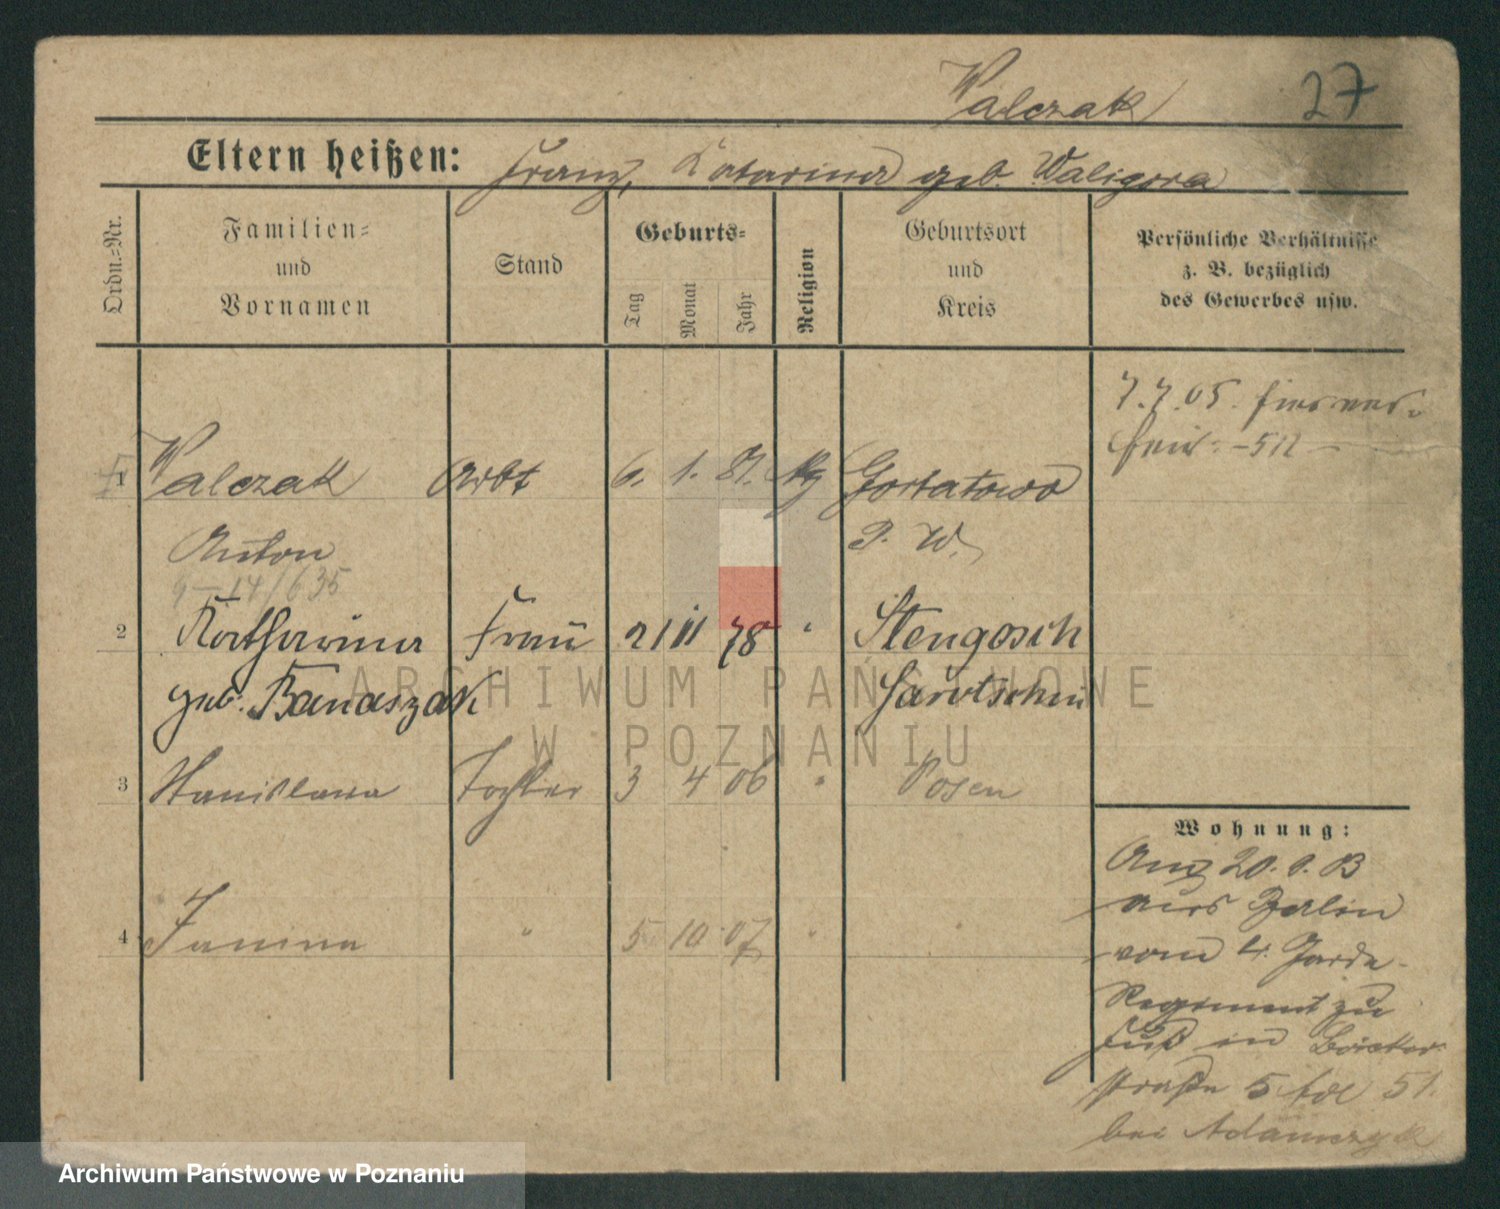 Walczak
27
Eltern heißen: Franz, Katarina geb. Waligora
Ordn.-Nr.
Familien-
und
Vornamen
Stand
Geburts-
Tag
Monat
Jahr
Religion
Geburtsort
und
Kreis
Persönliche Verhältnisse
z. B. bezüglich
des Gewerbes usw.
7.7.05.
1 Walczak Arbt 6. 1. 81. Gortatowo
Anton P. W.
9-14/635
2 Katharina Frau 21 11 78 " Stengosch
geb. Banaszak Jarotschin
3 Stanislawa Tochter 3 4 06 " Posen
4 Janina " 5 10 07 " "
Wohnung:
Anz 20. 9. 03
aus Berlin
vom 4. Garde-
Regiment zu
Fuß in
straße 5 51.
bei Adamczyk
ARCHIWUM PAŃSTWOWE
W POZNANIU
Archiwum Państwowe w Poznaniu